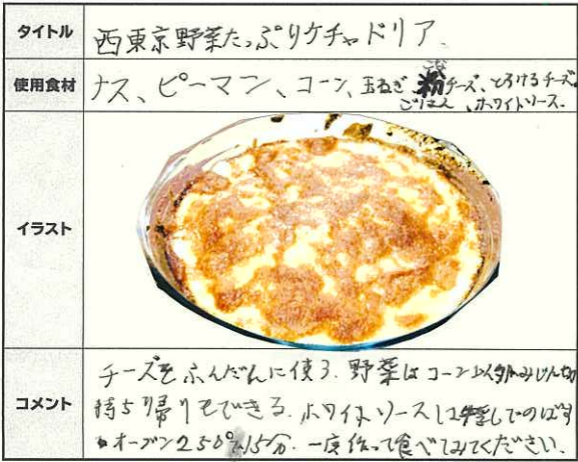 タイトル
西東京野菜たっぷりケチャドリア、
使用食材
ナス、ピーマン、コーン、玉ねぎ、粉チーズ、とろけるチーズ
こな
ごはん、ホワイトソース、
イラスト
コメント
チーズをふんだんに使う、野菜はコーン以外みじん切
持ち帰りもできる、ホワイトソースは牛乳でのばす
オーブン250℃15分、一度作って食べてみてください、